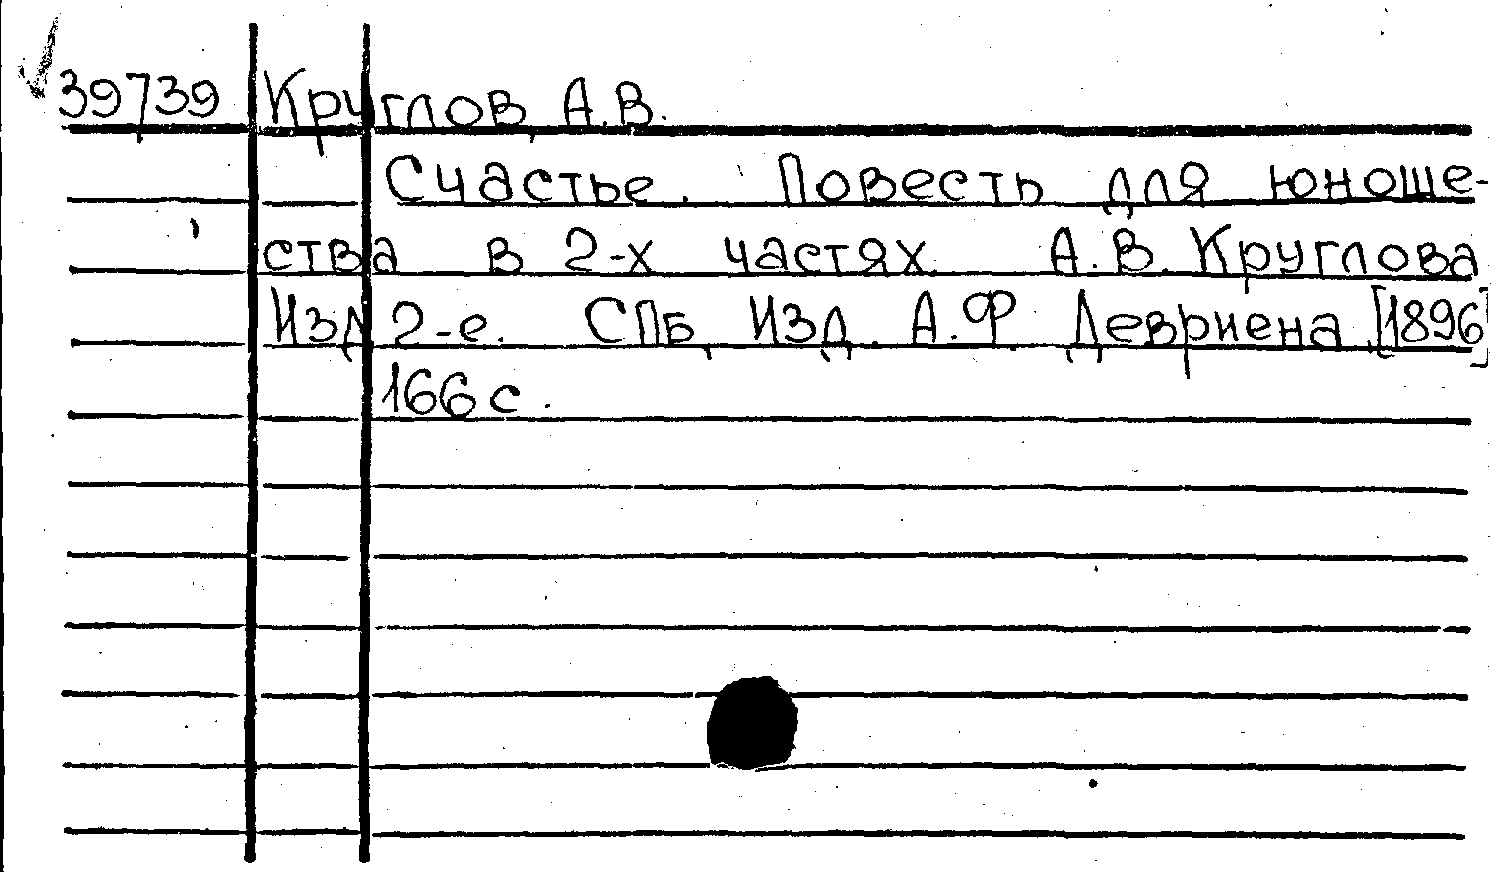 39739 Круглов, А.В.
Счастье. Повесть для юноше-
ства в 2-х частях. А.В. Круглова
Изд 2-е. СПБ, Изд. А.Ф. Девриена, [1896]
166 с.